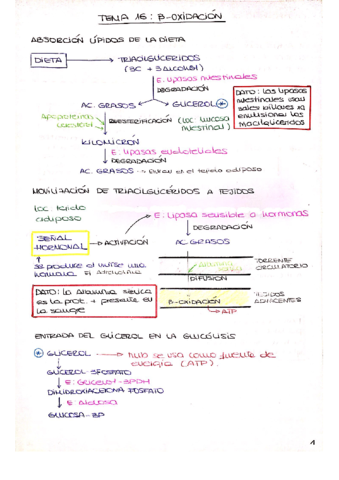 TEMA 16: β-OXIDACIÓN
ABSORCIÓN LÍPIDOS DE LA DIETA
DIETA → TRIACILGLICERIDOS
E: lipasas intestinales
DEGRADACIÓN
AC. GRASOS GLICEROL *
DATO: las lipasas
intestinales usan
sales biliares xa
emulsionar los
REESTERIFICACIÓN (loc: mucosa
intestinal)
QUILOMICRÓN
E: lipasas endoteliales
DEGRADACIÓN
AC. GRASOS → en el tejido adiposo
MOVILIZACIÓN DE TRIACILGLICÉRIDOS A TEJIDOS
loc: tejido
adiposo
E: lipasa sensible a hormonas
DEGRADACIÓN
SEÑAL
HORMONAL → ACTIVACIÓN
AC. GRASOS
se produce al unirse una
hormona
TORRENTE
CIRCULATORIO
DIFUSIÓN
DATO: la albúmina sérica
es la prot. + presente en
la sangre
β-OXIDACIÓN
TEJIDOS
ADYACENTES
→ ATP
ENTRADA DEL GLICEROL EN LA GLICÓLISIS
* GLICEROL → tmb se usa como fuente de
energía (ATP).
GLICEROL-3FOSFATO
E: Glicerol-3PDH
DIHIDROXIACETONA FOSFATO
E: Aldolasa
1